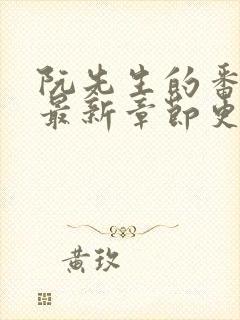 阮先生的番
最新章节更
黄玖